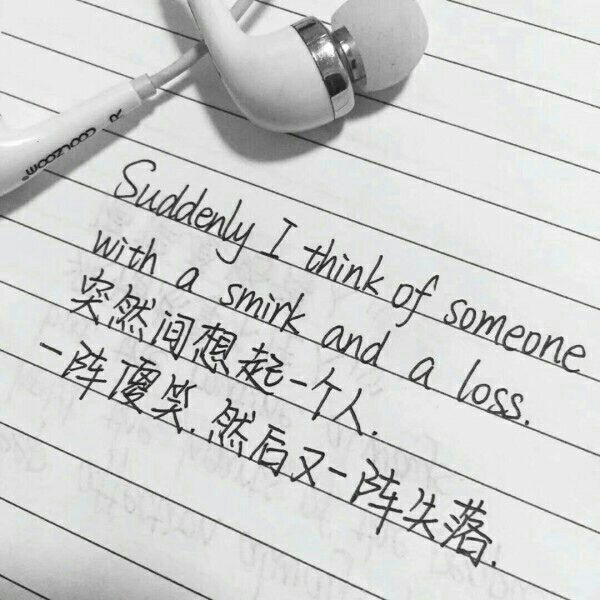 COOLZOOM R
Suddenly I think of someone
with a smirk and a loss.
突然间想起一个人.
一阵傻笑.然后又一阵失落.